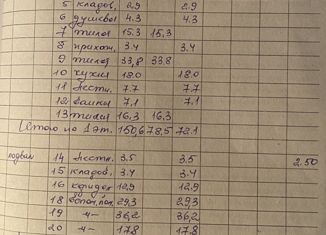 5 кладов. 2.9 2.9
6 душевая 4.3 4.3
7 жилая 15.3 15,3
8 прихож. 3.4 3.4
9 жилая 33,8 33,8
10 кухня 18.0 18.0
11 лестн. 7.7 7.7
12 7,1 7,1
13 жилая 16,3 16,3
Итого по 1 эт. 150,6 78,5 72.1
подвал 14 лестн. 3,5 3,5 2.50
15 кладов. 3.4 3.4
16 коридор 12,9 12,9
18 29,3 29,3
19 -"- 36,2 36,2
20 -"- 17.8 17.8